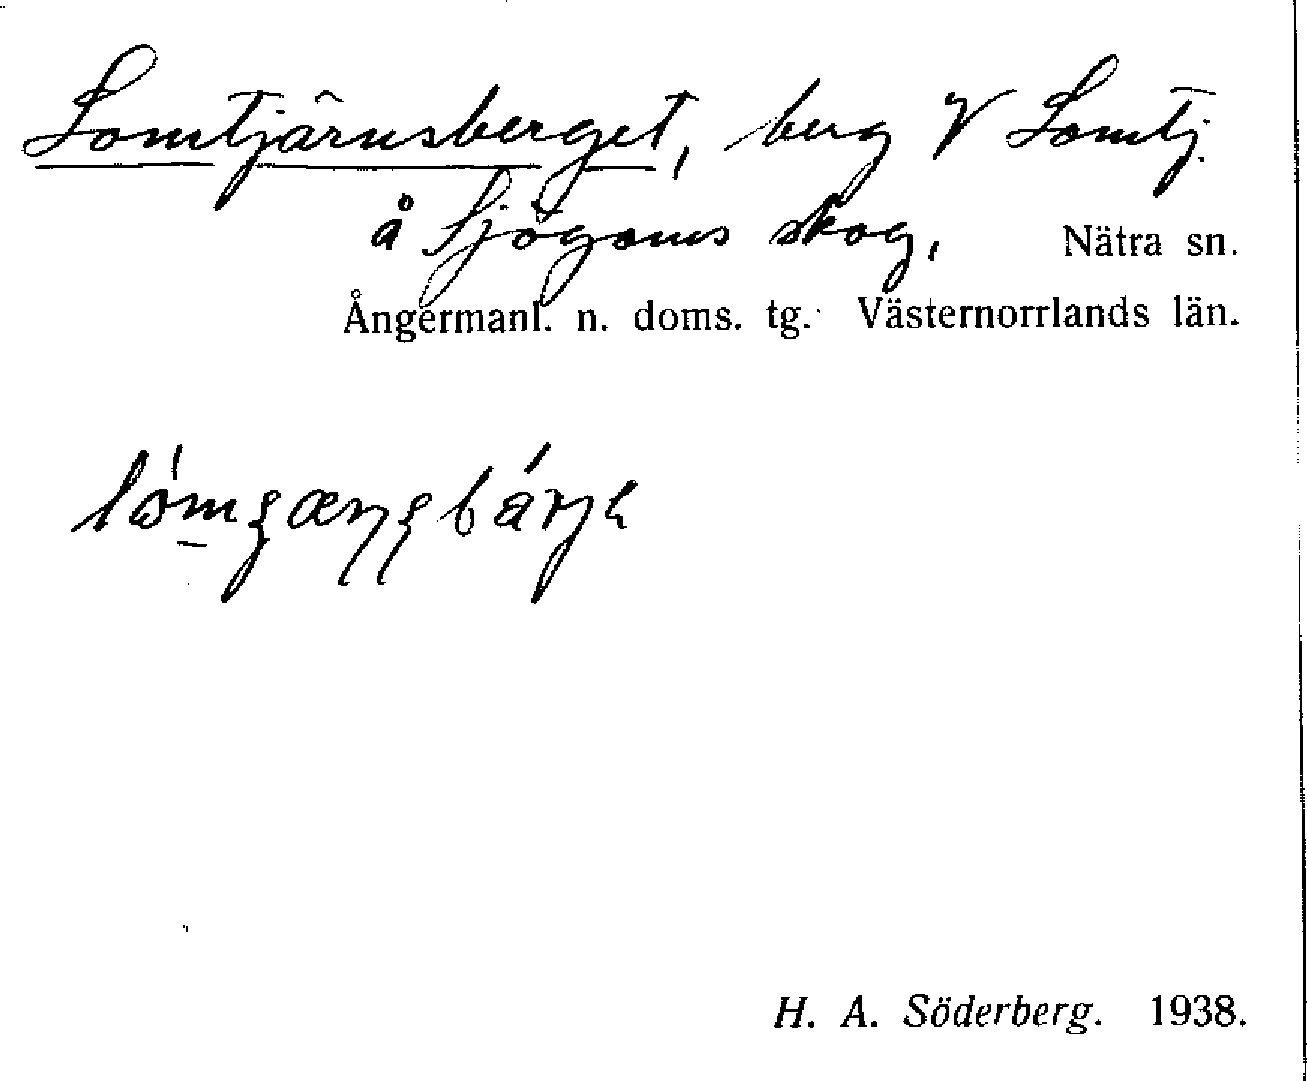 Lomtjärnsberget, berg V Lomtj.
å Sjögoms skog, Nätra sn.
Ångermanl. n. doms. tg. Västernorrlands län.
H. A. Söderberg. 1938.